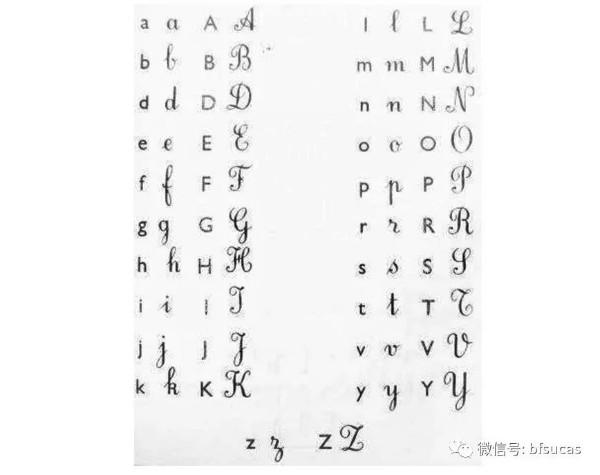 a a A A l l L L
b b B B m m M M
d d D D n n N N
e e E E o o O O
f f F F p p P P
g g G G r r R R
h h H H s s S S
i i I I t t T T
j j J J v v V V
k k K K y y Y Y
z z Z Z
微信号: bfsucas